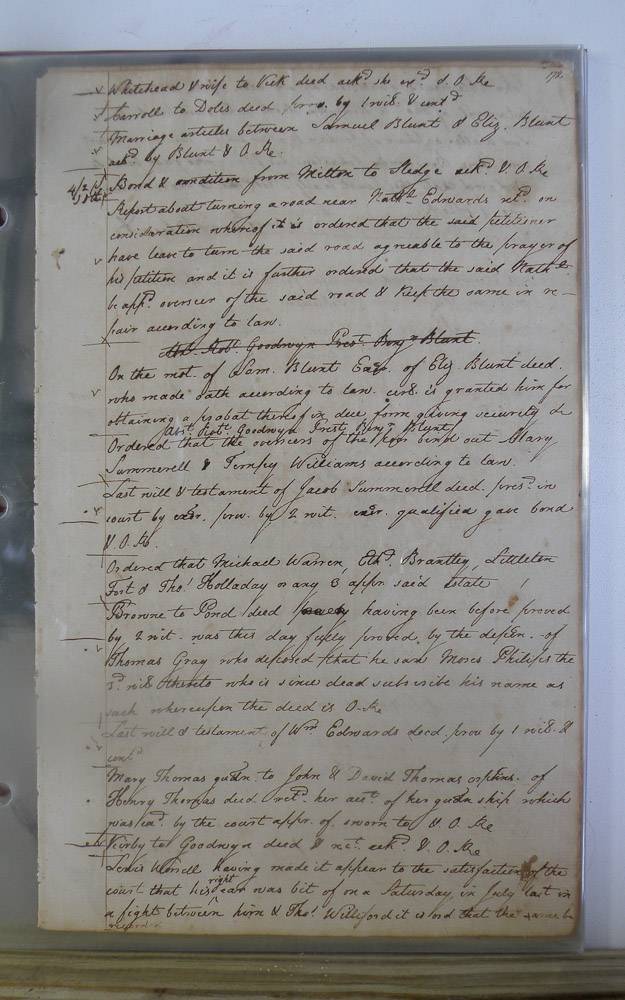 178
Whitehead & wife to Vick deed ackd she exd & O. Re
Carroll to Doles deed prov. by 1 wit. & contd
Marriage articles between Samuel Blunt & Eliz. Blunt
ackd by Blunt & O Re
Bond & condition from Milton to Sledge ackd & O. Re
Report about turning a road near Nathl Edwards retd on
consideration whereof it is ordered that the said petitioner
have leave to turn the said road agreeable to the prayer of
his petition and it is further ordered that the said Nathl
be appd overseer of the said road & keep the same in re-
pair according to law.
Abst. Robt. Goodwyn Prest. Benja Blunt.
On the mot. of Sam. Blunt Exor. of Eliz. Blunt deed.
who made oath according to law. cert. is granted him for
obtaining a probat thereof in due form giving security &c
Abst. Robt. Goodwyn Prest Benja Blunt
Ordered that the overseers of the poor bind out Mary
Summerell & Tempy Williams according to law.
Last will & testament of Jacob Summerell deed. presd in
court by exor. prov. by 2 wit. exor. qualified gave bond
& O. Re.
Ordered that Michael Warren, Ethd. Brantley, Littleton
Fort & Thos. Holladay or any 3 appr. said Estate
Browne to Pond deed having been before proved
by 2 wit. was this day fully proved by the depon. of
Thomas Gray who deposed that he saw Moses Philips the
3d. wit. thereto who is since dead subscribe his name as
such whereupon the deed is O. Re
Last will & testament of Wm Edwards decd. prov by 1 wit. &
contd
Mary Thomas guardn. to John & David Thomas orphns. of
Henry Thomas deed retd. her acct. of her guardnship which
was exd. by the court appr. of sworn to & O. Re
Kirby to Goodwyn deed & rect. ackd. & O. Re
Lewis Worrell having made it appear to the satisfaction of the
court that his right ear was bit of on a Saturday in July last in
a fight between him & Thos. Williford it is ord that the same be
recorded